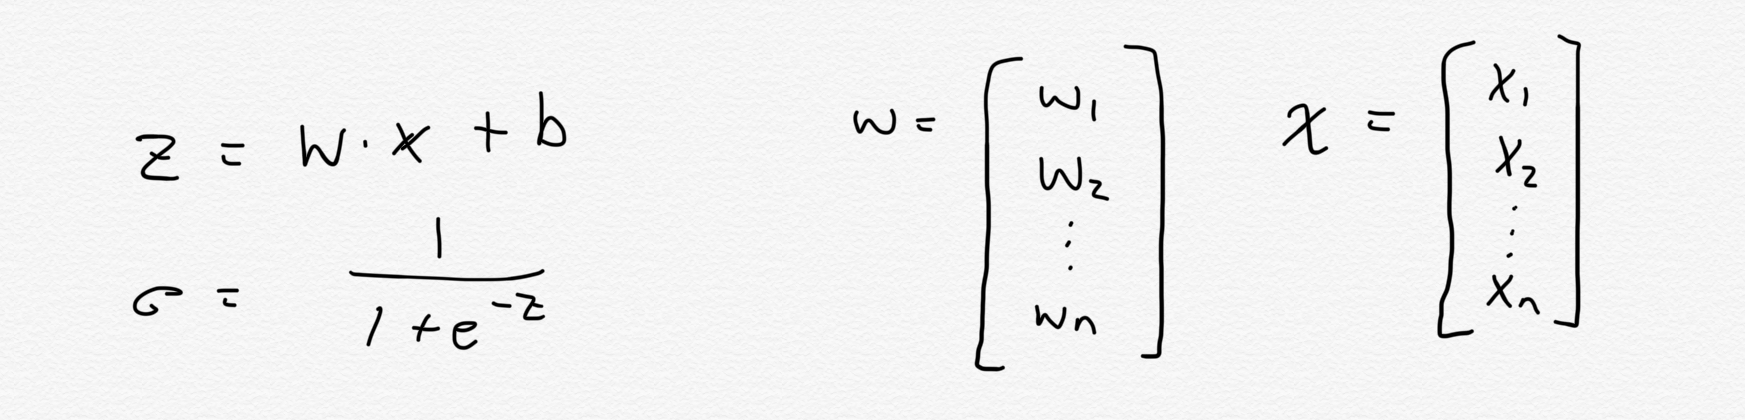 z = w · x + b
σ = 1 / (1 + e^-z)
w = [w₁ w₂ ⋮ wₙ]
x = [x₁ x₂ ⋮ xₙ]